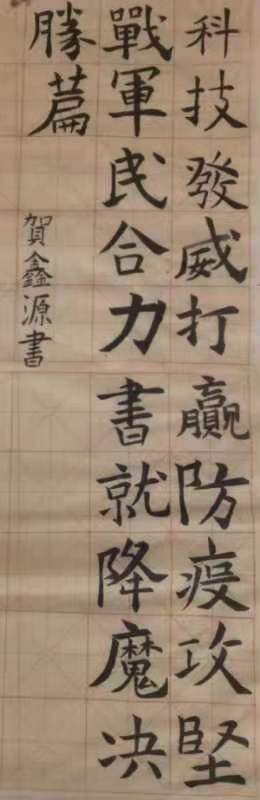 科技發威打贏防疫攻堅
戰軍民合力書就降魔决
勝篇
賀鑫源書